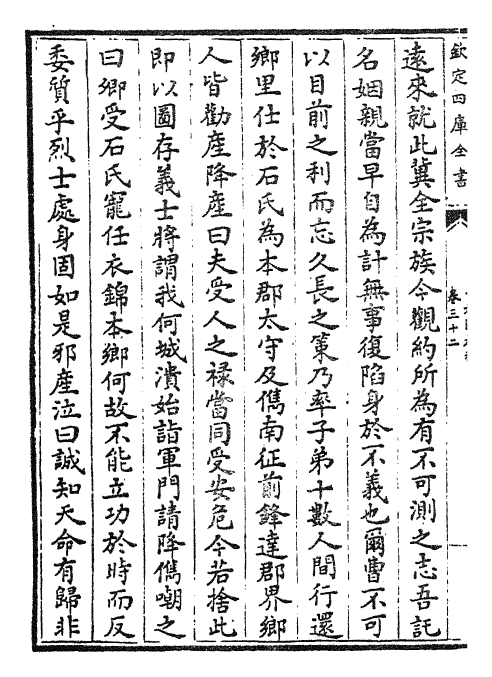 欽定四庫全書
卷三十二
遠來就此冀全宗族今觀約所為有不可測之志吾託
名姻親當早自為計無事復陷身於不義也爾曹不可
以目前之利而忘久長之策乃率子弟十數人間行還
鄉里仕於石氏為本郡太守及儁南征前鋒達郡界鄉
人皆勸產降產曰夫受人之祿當同受安危今若捨此
即以圖存義士將謂我何城潰始詣軍門請降儁嘲之
曰卿受石氏寵任衣錦本鄉何故不能立功於時而反
委質乎烈士處身固如是邪產泣曰誠知天命有歸非